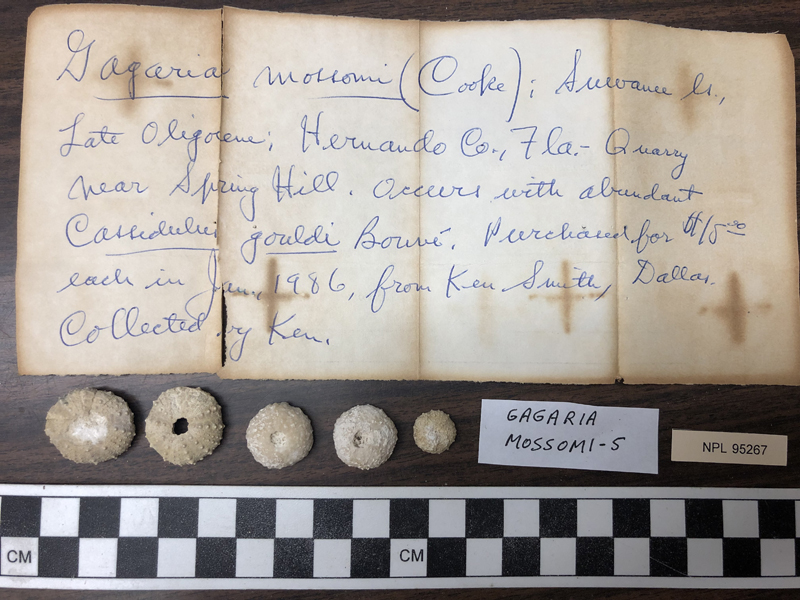 Gagaria mossomi (Cooke); Suwanee ls.,
Late Oligocene; Hernando Co., Fla.- Quarry
near Spring Hill. Occurs with abundant
Cassidulus gouldi Bouvé. Purchased for $15.00
each in Jan., 1986, from Ken Smith, Dallas.
Collected by Ken.
GAGARIA
MOSSOMI-5
NPL 95267
CM CM